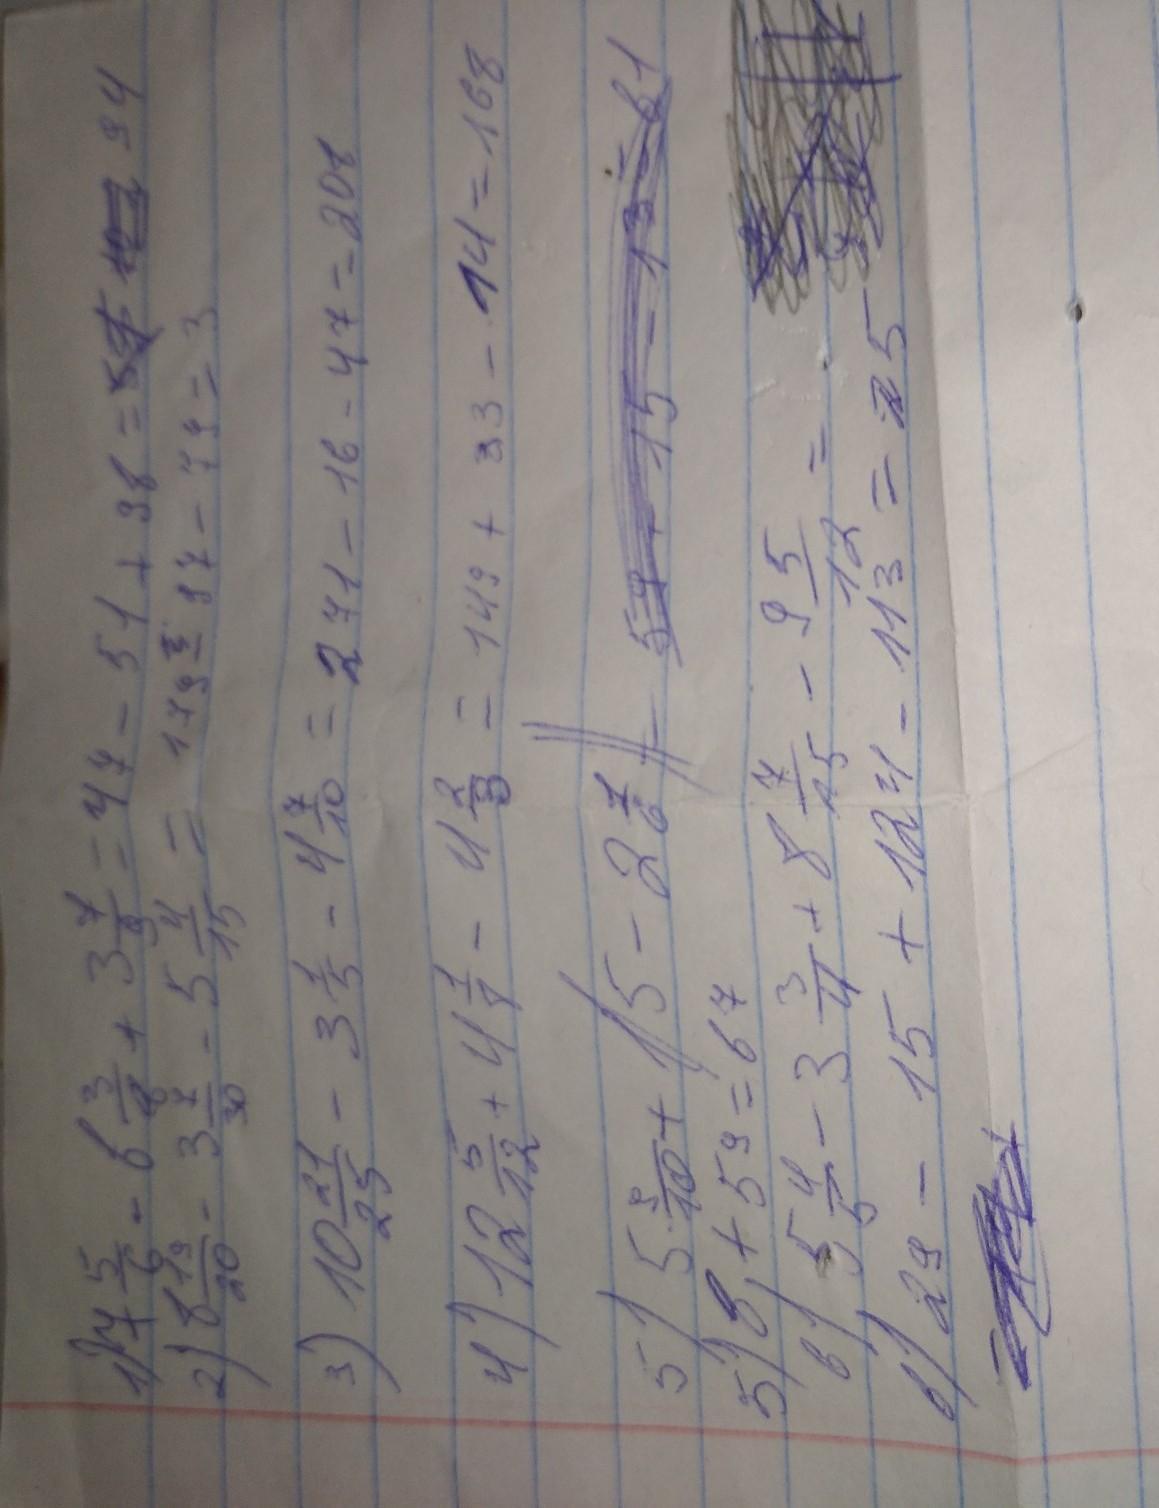 1) 7 5/6 - 6 3/8 + 3 7/9 = 47 - 51 + 98 = 94
2) 8 19/20 - 3 7/30 - 5 4/15 = 179 - 97 - 79 = 3
3) 10 21/25 - 3 1/5 - 4 7/10 = 271 - 16 - 47 = 208
4) 12 5/12 + 4 1/8 - 4 2/3 = 149 + 33 - 14 = 168
5) 5 8/10 + 1/5 - 2 7/6
5) 8 + 59 = 67
6) 5 4/5 - 3 3/4 + 8 7/15 - 9 5/12 =
6) 29 - 15 + 124 - 113 = 25